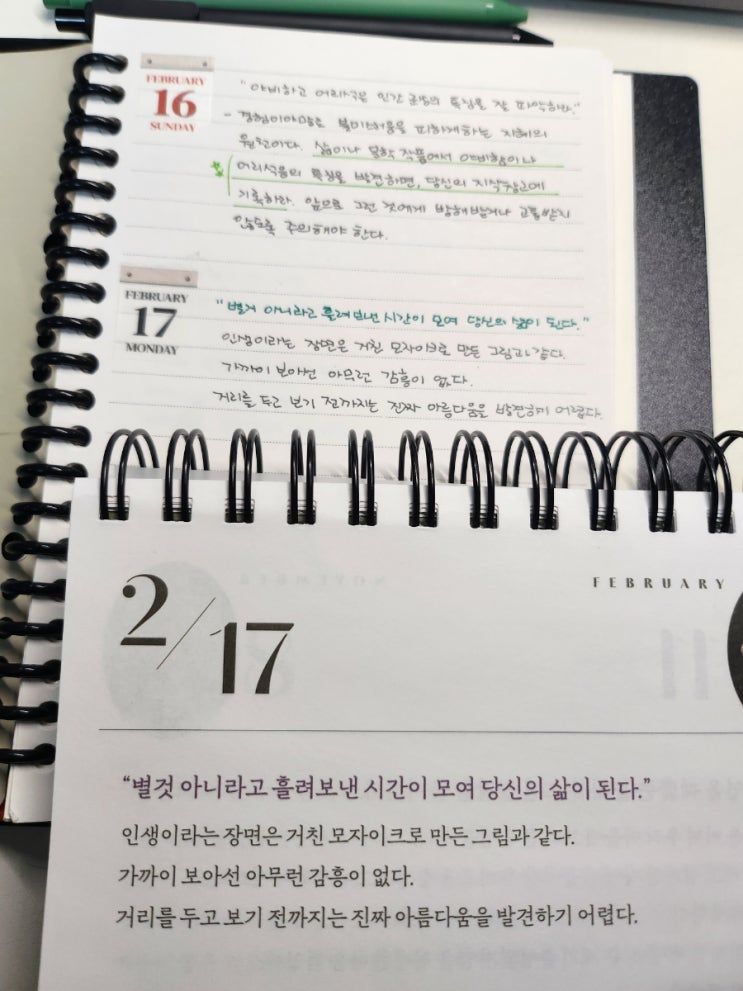 FEBRUARY
16
SUNDAY
"야비하고 어리석은 인간 군상의 특징을 잘 파악하라."
- 경험이야말로 불미스러움을 피하게하는 지혜의
원천이다. 삶이나 문학 작품에서 야비함이나
어리석음의 특징을 발견하면, 당신의 지식창고에
기록하라. 앞으로 그런 것에게 방해받거나 고통받지
않도록 주의해야 한다.
FEBRUARY
17
MONDAY
"별거 아니라고 흘려보낸 시간이 모여 당신의 삶이 된다."
인생이라는 장면은 거친 모자이크로 만든 그림과 같다.
가까이 보아선 아무런 감흥이 없다.
거리를 두고 보기 전까지는 진짜 아름다움을 발견하기 어렵다.
2/17
FEBRUARY
“별것 아니라고 흘려보낸 시간이 모여 당신의 삶이 된다.”
인생이라는 장면은 거친 모자이크로 만든 그림과 같다.
가까이 보아선 아무런 감흥이 없다.
거리를 두고 보기 전까지는 진짜 아름다움을 발견하기 어렵다.